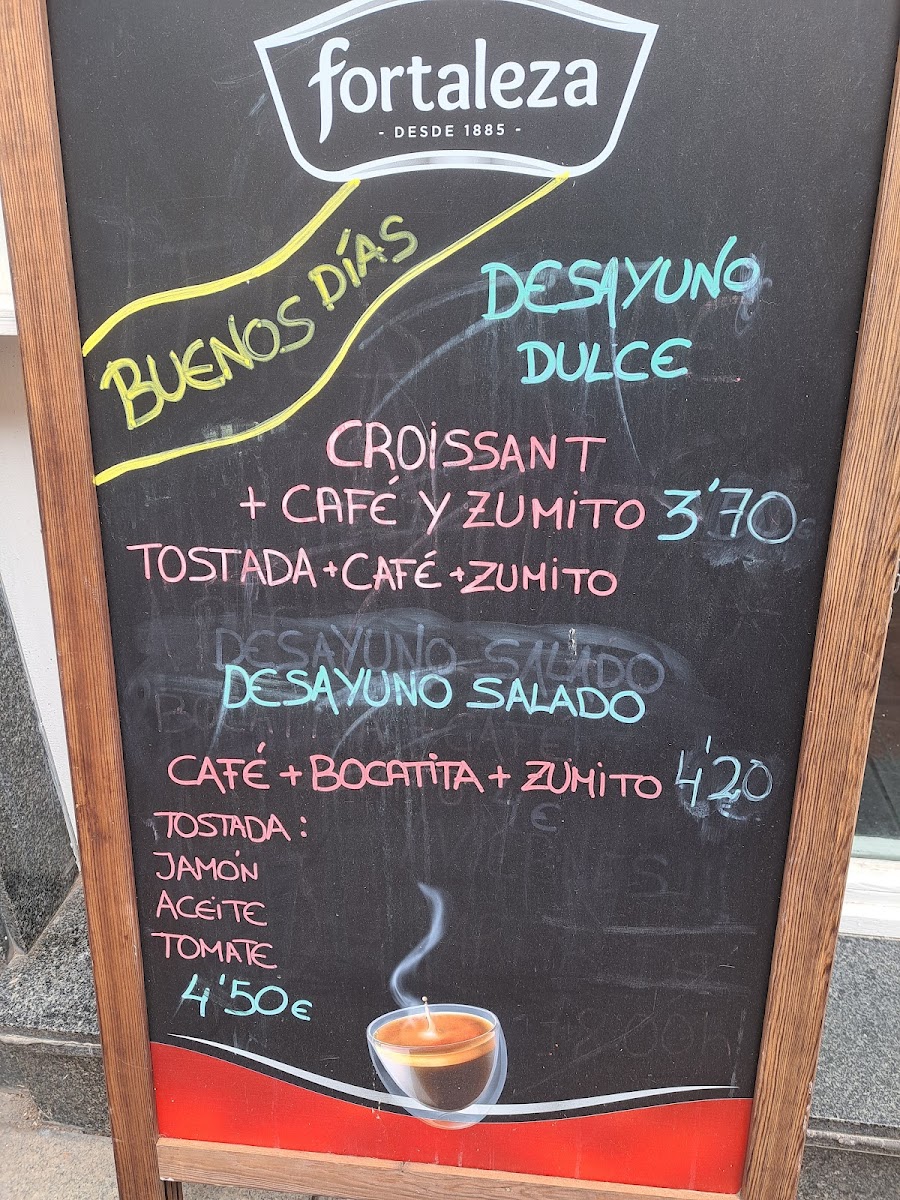 fortaleza
- DESDE 1885 -
BUENOS DÍAS
DESAYUNO
DULCE
CROISSANT
+ CAFÉ Y ZUMITO 3'70
TOSTADA + CAFÉ + ZUMITO
DESAYUNO SALADO
DESAYUNO SALADO
CAFÉ + BOCATITA + ZUMITO 4'20
TOSTADA :
JAMÓN
ACEITE
TOMATE
4'50€